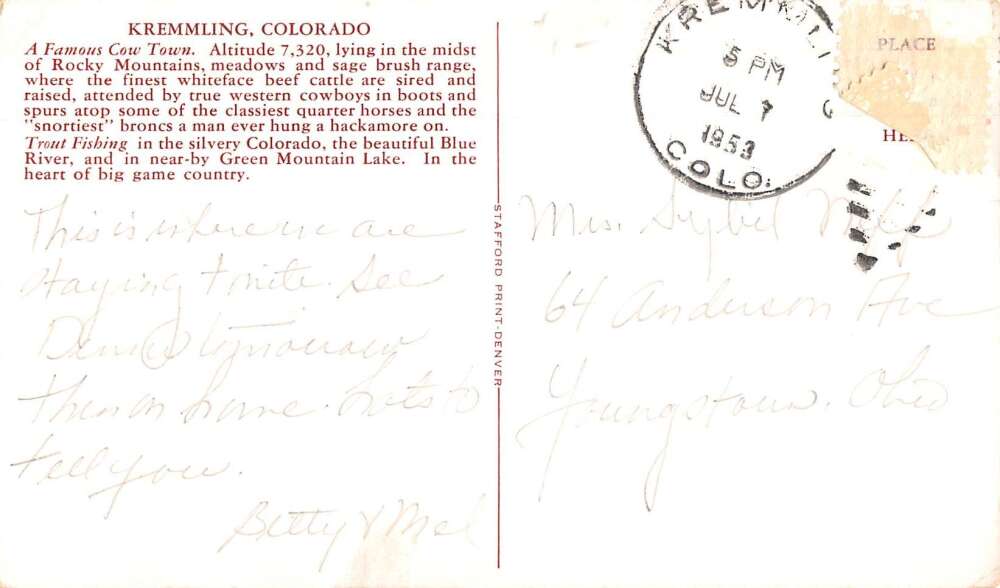 KREMMLING, COLORADO
A Famous Cow Town. Altitude 7,320, lying in the midst
of Rocky Mountains, meadows and sage brush range,
where the finest whiteface beef cattle are sired and
raised, attended by true western cowboys in boots and
spurs atop some of the classiest quarter horses and the
"snortiest" broncs a man ever hung a hackamore on.
Trout Fishing in the silvery Colorado, the beautiful Blue
River, and in near-by Green Mountain Lake. In the
heart of big game country.
This is where we are
staying tonite. See
Denver tomorrow
then on home. Lots to
tell you.
Betty & Mel
STAFFORD PRINT-DENVER
KREMMLING
5 PM
JUL 7
1953
COLO.
PLACE
Mrs. Sybil
64 Anderson Ave
Youngstown, Ohio